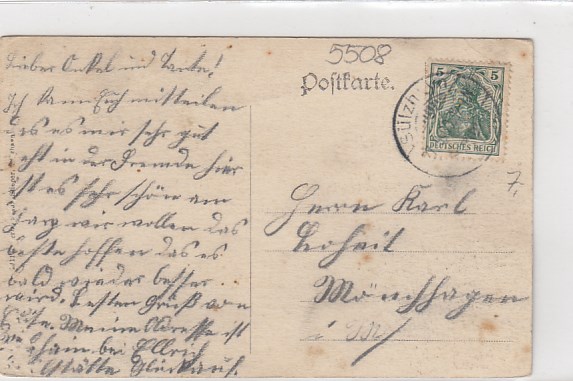 5508
Postkarte.
5 5
DEUTSCHES REICH
Sülzh
7,
Lieber Onkel und Tante!
Ich kann Euch mitteilen
das es mir sehr gut
geht in der Fremde hier
ist es sehr schön am
Harz wir wollen das
beste hoffen das es
bald wieder besser
wird. Besten Gruß von
Meine Adresse ist
bei Ellrich
Glückauf.
Herrn Karl
Loheit
Mönchhagen
i/M